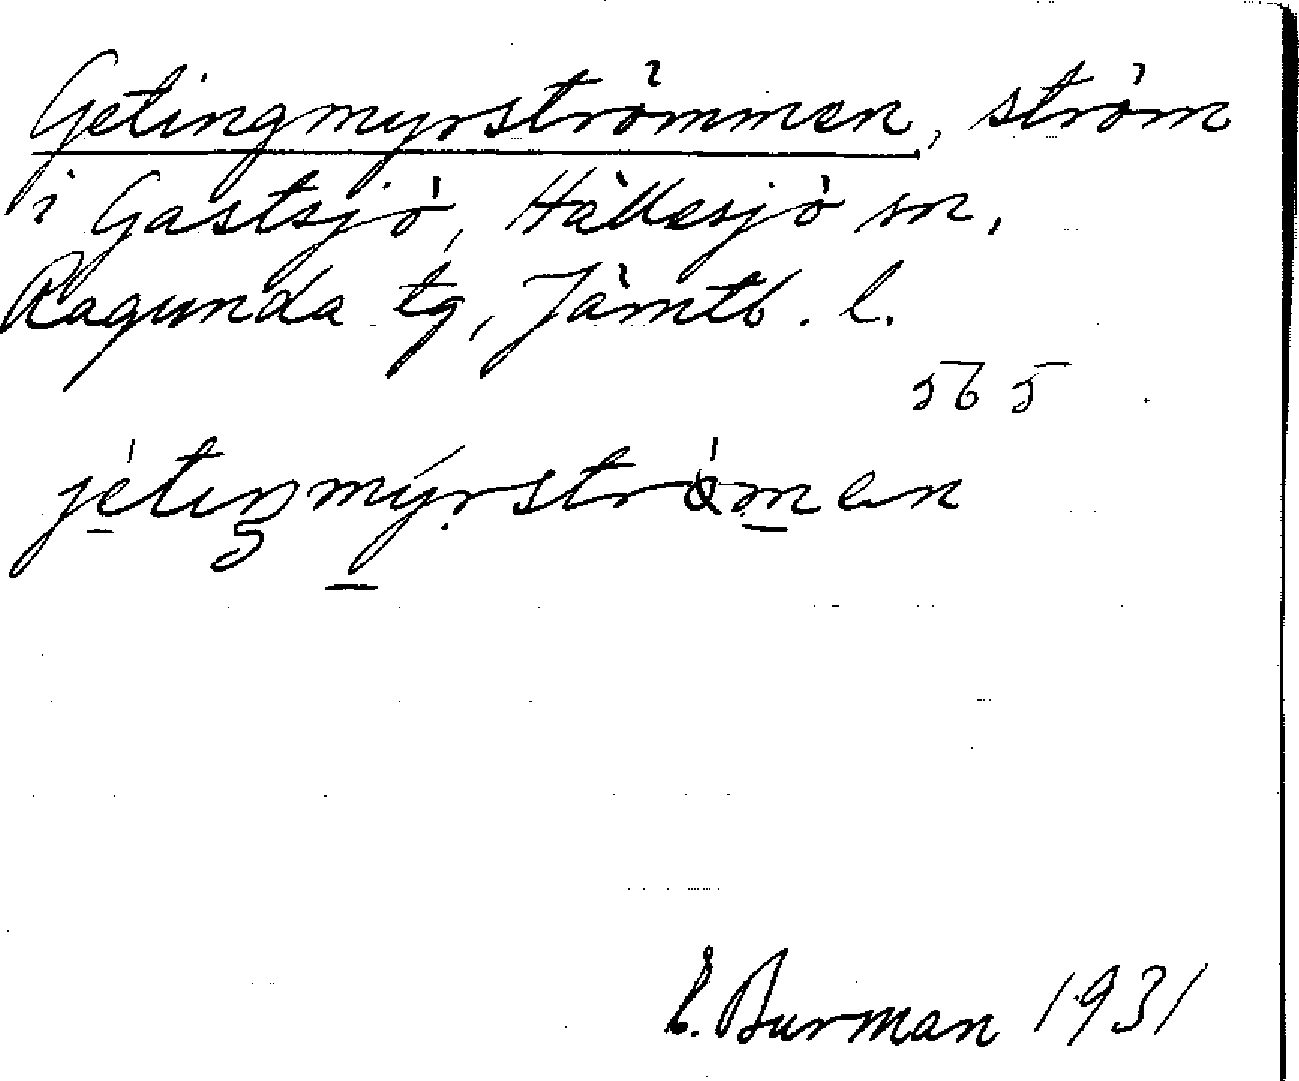 Getingmyrströmmen, ström
i Gastsjö, Hällesjö sn,
Ragunda tg, Jämtl. l.
565
E. Burman 1931